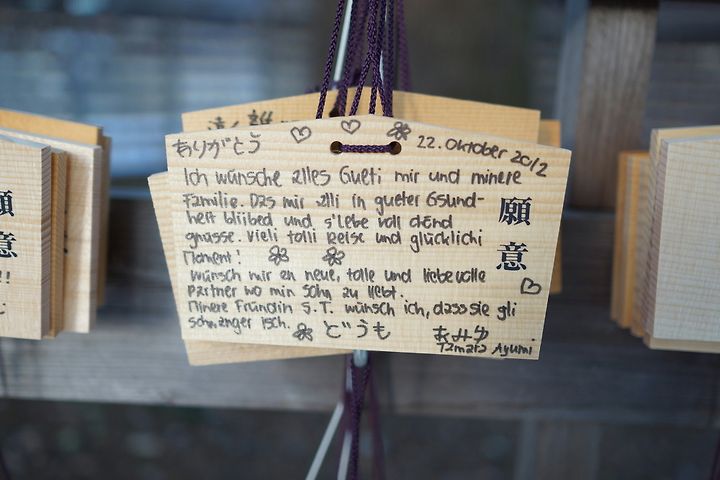 ありがとう 22. Oktober 2012
Ich wünsche alles Gueti mir und minere
Familie. Das mir alli in gueter Gsund-
heit bliibed und s'Lebe voll chönd
gnüsse. Vieli tolli Reise und glücklichi
Moment!
Wünsch mir en neue, tolle und liebevolle
Partner wo min Sohn au liebt.
Minere Fründin S.T. wünsch ich, dass sie gli
schwanger isch. どうも
あみゆ
Tamara Ayumi
願意
願意
!!